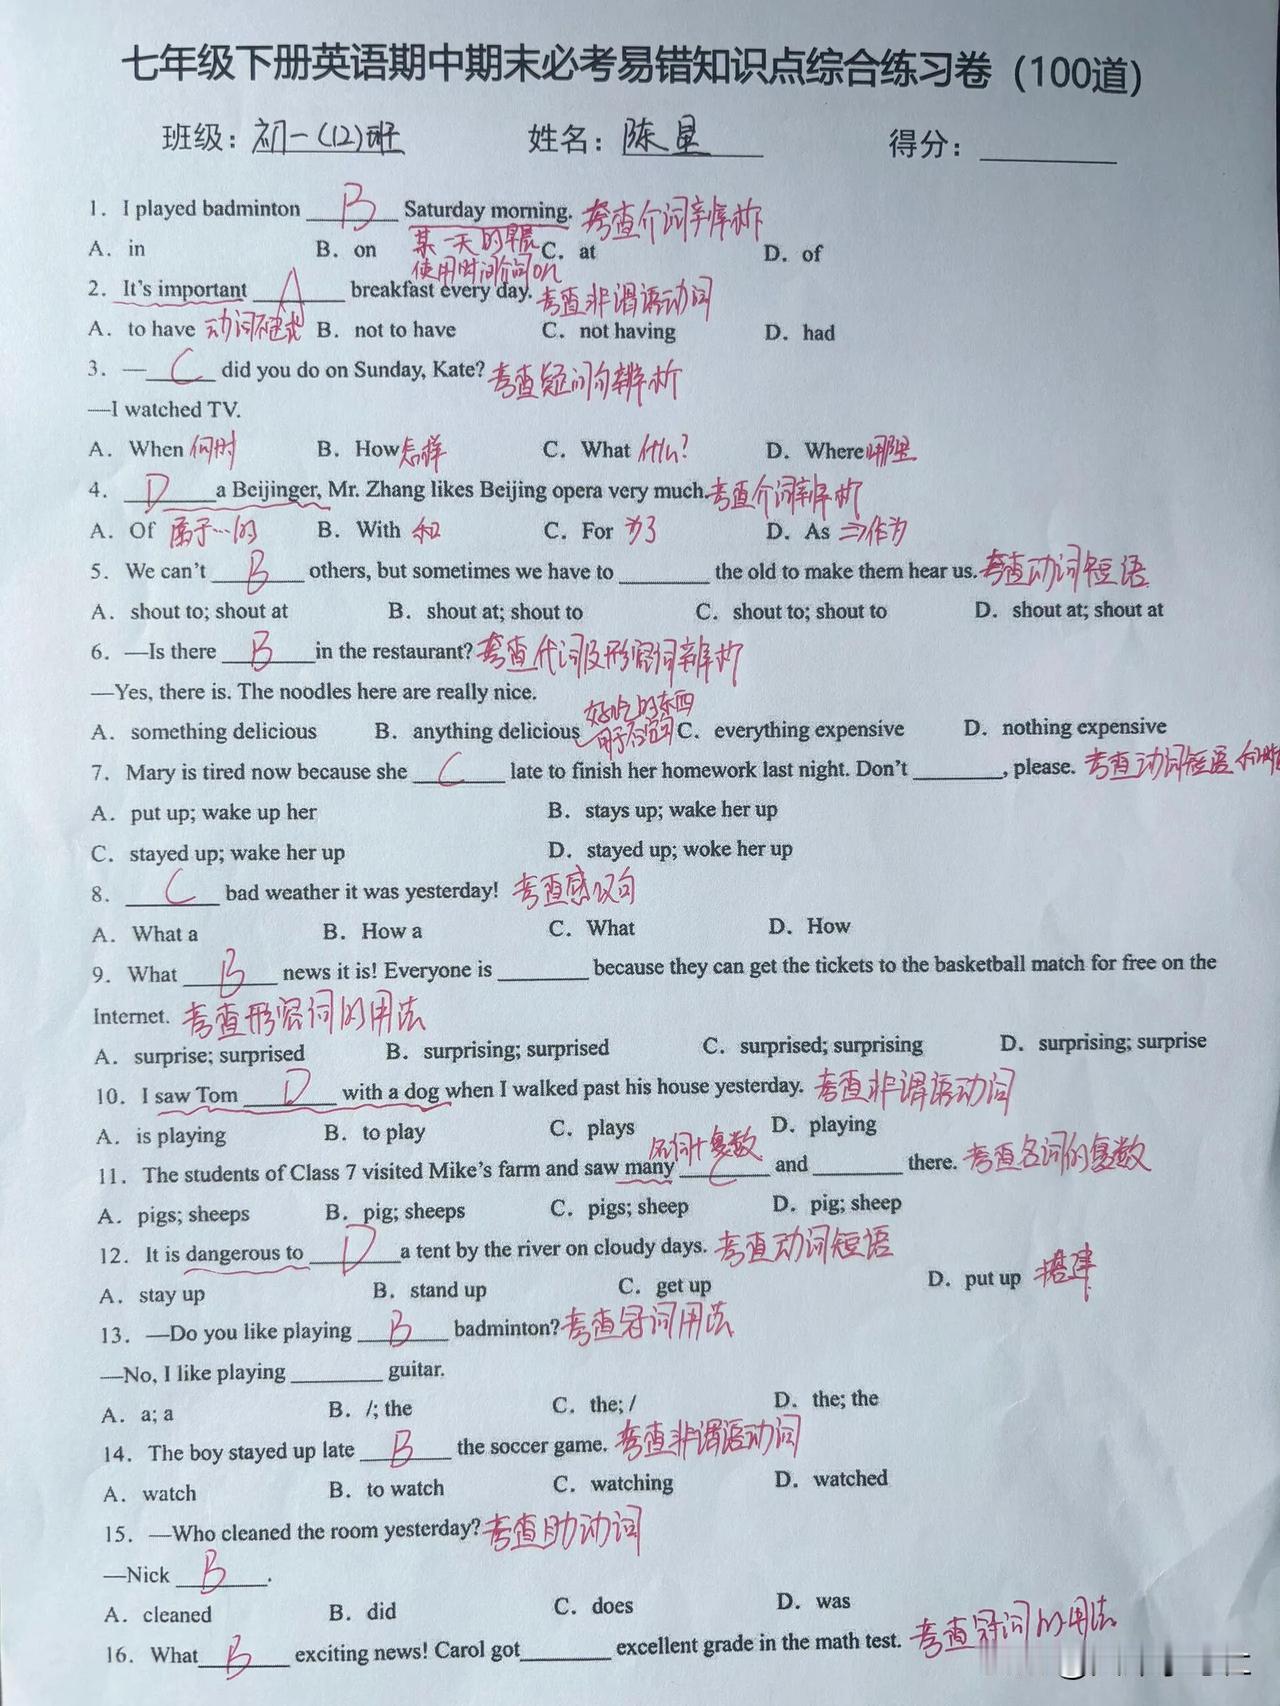 七年级下册英语期中期末必考易错知识点综合练习卷（100道）
班级：初一(12)班 姓名：陈星 得分：________
1．I played badminton B Saturday morning. 考查介词辨析
A．in B．on C．at D．of
某一天的早晨
使用时间介词on
2．It's important A breakfast every day. 考查非谓语动词
A．to have 动词不定式 B．not to have C．not having D．had
3．—C did you do on Sunday, Kate? 考查疑问句辨析
—I watched TV.
A．When 何时 B．How 怎样 C．What 什么? D．Where 哪里
4．D a Beijinger, Mr. Zhang likes Beijing opera very much. 考查介词辨析
A．Of 属于…的 B．With 和 C．For 为了 D．As ⇒作为
5．We can't B others, but sometimes we have to ________ the old to make them hear us. 考查动词短语
A．shout to; shout at B．shout at; shout to C．shout to; shout to D．shout at; shout at
6．—Is there B in the restaurant? 考查代词及形容词辨析
—Yes, there is. The noodles here are really nice.
好吃的东西
A．something delicious B．anything delicious 用于否定词 C．everything expensive D．nothing expensive
7．Mary is tired now because she C late to finish her homework last night. Don't ________, please. 考查动词短语
A．put up; wake up her B．stays up; wake her up
C．stayed up; wake her up D．stayed up; woke her up
8．C bad weather it was yesterday! 考查感叹句
A．What a B．How a C．What D．How
9．What B news it is! Everyone is ________ because they can get the tickets to the basketball match for free on the
Internet. 考查形容词的用法
A．surprise; surprised B．surprising; surprised C．surprised; surprising D．surprising; surprise
10．I saw Tom D with a dog when I walked past his house yesterday. 考查非谓语动词
A．is playing B．to play C．plays D．playing
名词+复数
11．The students of Class 7 visited Mike's farm and saw many C and ________ there. 考查名词的复数
A．pigs; sheeps B．pig; sheeps C．pigs; sheep D．pig; sheep
12．It is dangerous to D a tent by the river on cloudy days. 考查动词短语
A．stay up B．stand up C．get up D．put up 搭建
13．—Do you like playing B badminton? 考查冠词用法
—No, I like playing ________ guitar.
A．a; a B．/; the C．the; / D．the; the
14．The boy stayed up late B the soccer game. 考查非谓语动词
A．watch B．to watch C．watching D．watched
15．—Who cleaned the room yesterday? 考查助动词
—Nick B.
A．cleaned B．did C．does D．was
16．What B exciting news! Carol got________ excellent grade in the math test. 考查冠词的用法